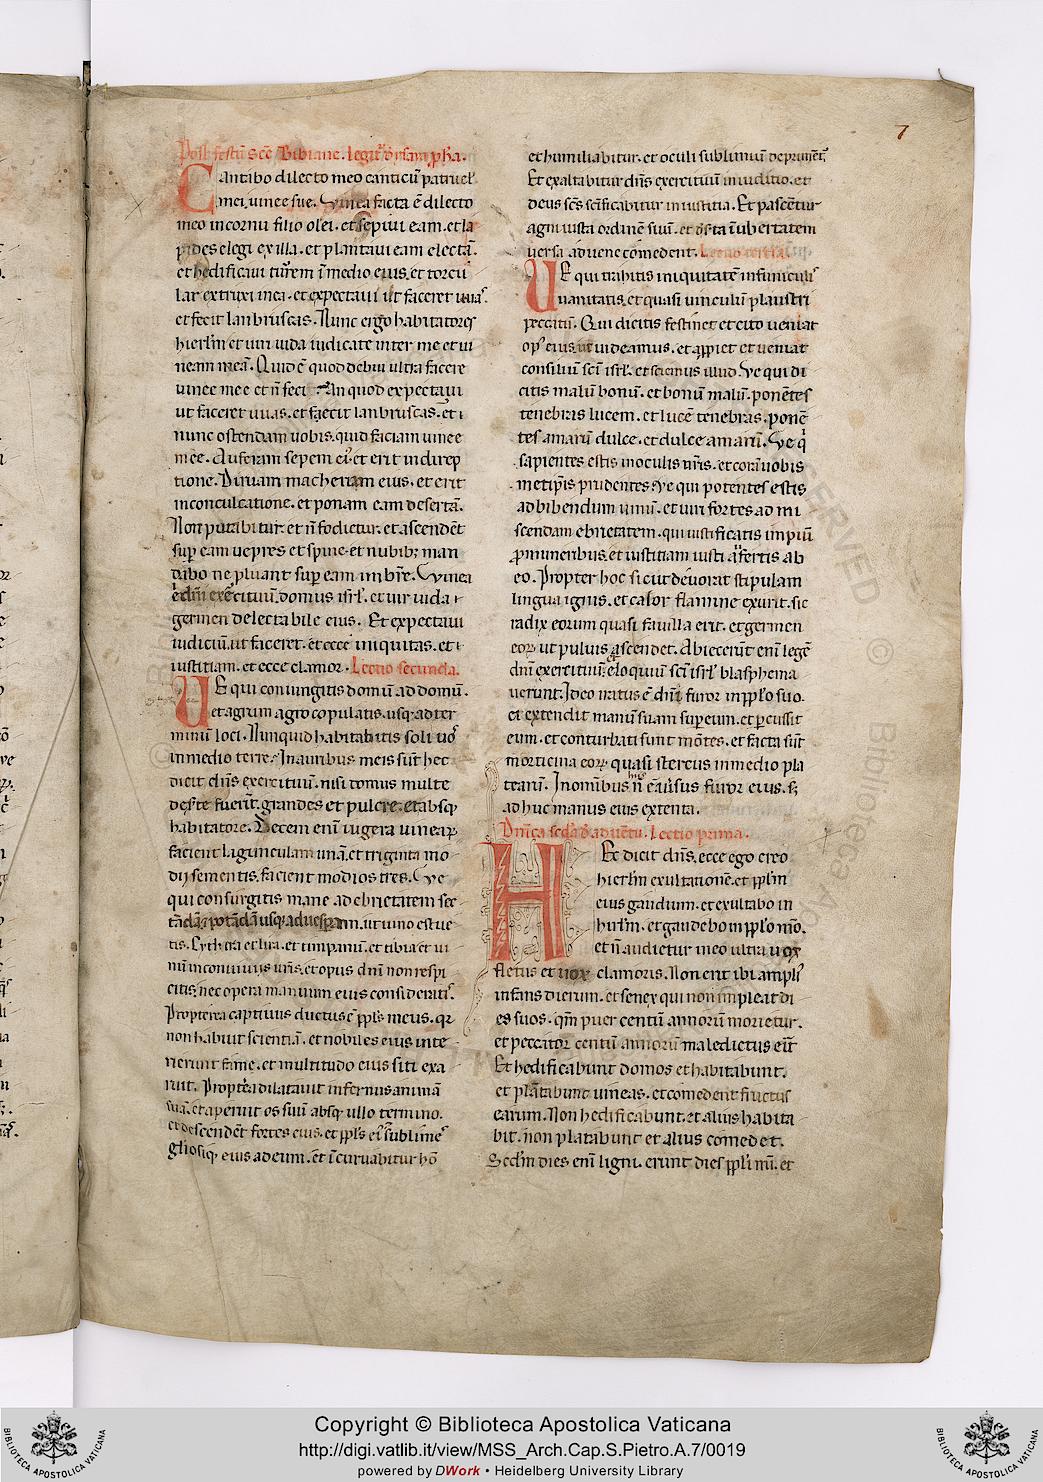 7
Post festũ sc̃e Bibiane. legit͛ d ysaya ꝓph̃a.
Cantabo dilecto meo canticũ patruel
mei, uinee sue. Vinea facta ẽ dilecto
meo in cornu filio olei. et sepiui eam. et la
pides elegi ex illa. et plantaui eam electã.
et hedificaui turr̃em ĩ medio eius. et torcu
lar extruxi in ea. et expectaui ut faceret uuas.
et fecit lanbruscas. Nunc ergo habitatores
hierlm̃ et uiri iuda iudicate inter me et ui
neam meã. Quid ẽ quod debui ultra facere
uinee mee et ñ feci. An quod expectaui
ut faceret uuas. et faecit lanbruscas. et
nunc ostendam uobis. quid faciam uinee
mee. Auferam sepem ei᷒. et erit in direp
tione. Diruam maceriam eius. et erit
in conculcatione. et ponam eam desertã.
Non putabitur. et ñ fodietur. et ascendẽt
suꝑ eam uepres et spine. et nubib; man
dabo ne pluant suꝑ eam imbr̃e. Vinea
ẽ dñi exẽrcituũ. domus isrl̃. et uir iuda
germen delectabile eius. Et expectaui
iudiciũ. ut faceret. et ecce iniquitas. et
iustitiam. et ecce clamor. Lectio secunda.
Ve qui coniungitis domũ ad domũ.
et agrum agro copulatis. usq; ad ter
minũ loci. Nunquid habitabitis soli uos
in medio terre. In auribus meis sũt hec
dicit dñs exercituũ. nisi domus multe
des̃te fuerĩt. grandes et pulcre. et absq;
habitatore. Decem enĩ iugera uineaꝝ
facient lagunculam unã. et triginta mo
dij sementis. facient modios tres. Ve
qui consurgitis mane ad ebrietatem sec
tãdã. et potãdã usq; ad uesꝑam. ut uino estue
tis. Cythara et lira. et timpanũ. et tibia et ui
nũ in conuiuijs ur̃is. et opus dñi non respi
citis, nec opera manuum eius consideratis.
Propterea captiuus ductus ẽ ppl̃s meus. qr
non habuit scientiã. et nobiles eius inte
rierunt fame. et multitudo eius siti exa
ruit. Propt̃ea dilatauit infernus animã
suã. et aperuit os suũ absq; ullo termino.
et descendẽt fortes eius. et ppl̃s ei᷒. et sublimes
gl̃iosiq; eius ad eum. et ĩcuruabitur hõ
et humiliabitur. et oculi sublimiũ deprimẽt᷑.
Et exaltabitur dñs exercituũ in iuditio. et
deus sc̃s sc̃ificabitur in iustitia. Et pascẽtur
agni iusta ordinẽ suũ. et des̃ta ĩ ubertatem
uersa aduene cõmedent. Lectio tertia.
Ve qui trahitis iniquitatẽ in funiculis
uanitatis. et quasi uinculũ plaustri
peccatũ. Qui dicitis festinet et cito ueniat
op᷒ eius. ut uideamus. et appiet et ueniat
consiliũ sc̃i isrl̃. et sciemus illud. Ve qui di
citis malũ bonũ. et bonũ malũ. ponẽtes
tenebras lucem. et lucẽ tenebras. ponẽ
tes amarũ dulce. et dulce amarũ. Ve q̇
sapientes estis in oculis ur̃is. et corã uobis
metip̃is prudentes. Ve qui potentes estis
ad bibendum uinũ. et uiri fortes ad mi
scendam ebrietatem. qui iustificatis impiũ
ꝓ muneribus. et iustitiam iusti aufertis ab
eo. Propter hoc sicut deuorat stipulam
lingua ignis. et calor flamme exurit. sic
radix eorum quasi fauilla erit. et germen
eoꝝ ut puluis ascendet. Abiecerũt enĩ legẽ
dñi exercituũ. et eloquiũ sc̃i isrl̃ blasphema
uerunt. Ideo iratus ẽ dñi furor in ppl̃o suo.
et extendit manũ suam sup eum. et ꝑcussit
eum. et conturbati sunt mõtes. et facta sũt
morticina eoꝝ quasi stercus in medio pla
tearũ. In omĩbus his ñ ẽ au᷑sus furor eius. s;
ad huc manus eius extenta.
Dñica scd̃a d̃ aduẽtu. Lectio prima.
Hec dicit dñs. ecce ego creo
hierlm̃ exultationẽ. et ppl̃m
eius gaudium. et exultabo in
hierlm̃. et gaudebo in ppl̃o m̃o.
et ñ audietur in eo ultra uox
fletus et uox clamoris. Non erit ibi ampli᷒
infans dierum. et senex qui non impleat di
es suos. qm̃ puer centũ annorũ morietur.
et peccator centũ annorũ maledictus er̃it
Et hedificabunt domos et habitabunt.
et plãtabunt uineas. et comedent fructus
earum. Non hedificabunt. et alius habita
bit. non platabunt et alius comedet.
Secd̃m dies enĩ ligni. erunt dies ppl̃i mei. et
Copyright © Biblioteca Apostolica Vaticana
http://digi.vatlib.it/view/MSS_Arch.Cap.S.Pietro.A.7/0019
powered by DWork • Heidelberg University Library
BIBLIOTECA APOSTOLICA VATICANA
BIBLIOTECA APOSTOLICA VATICANA